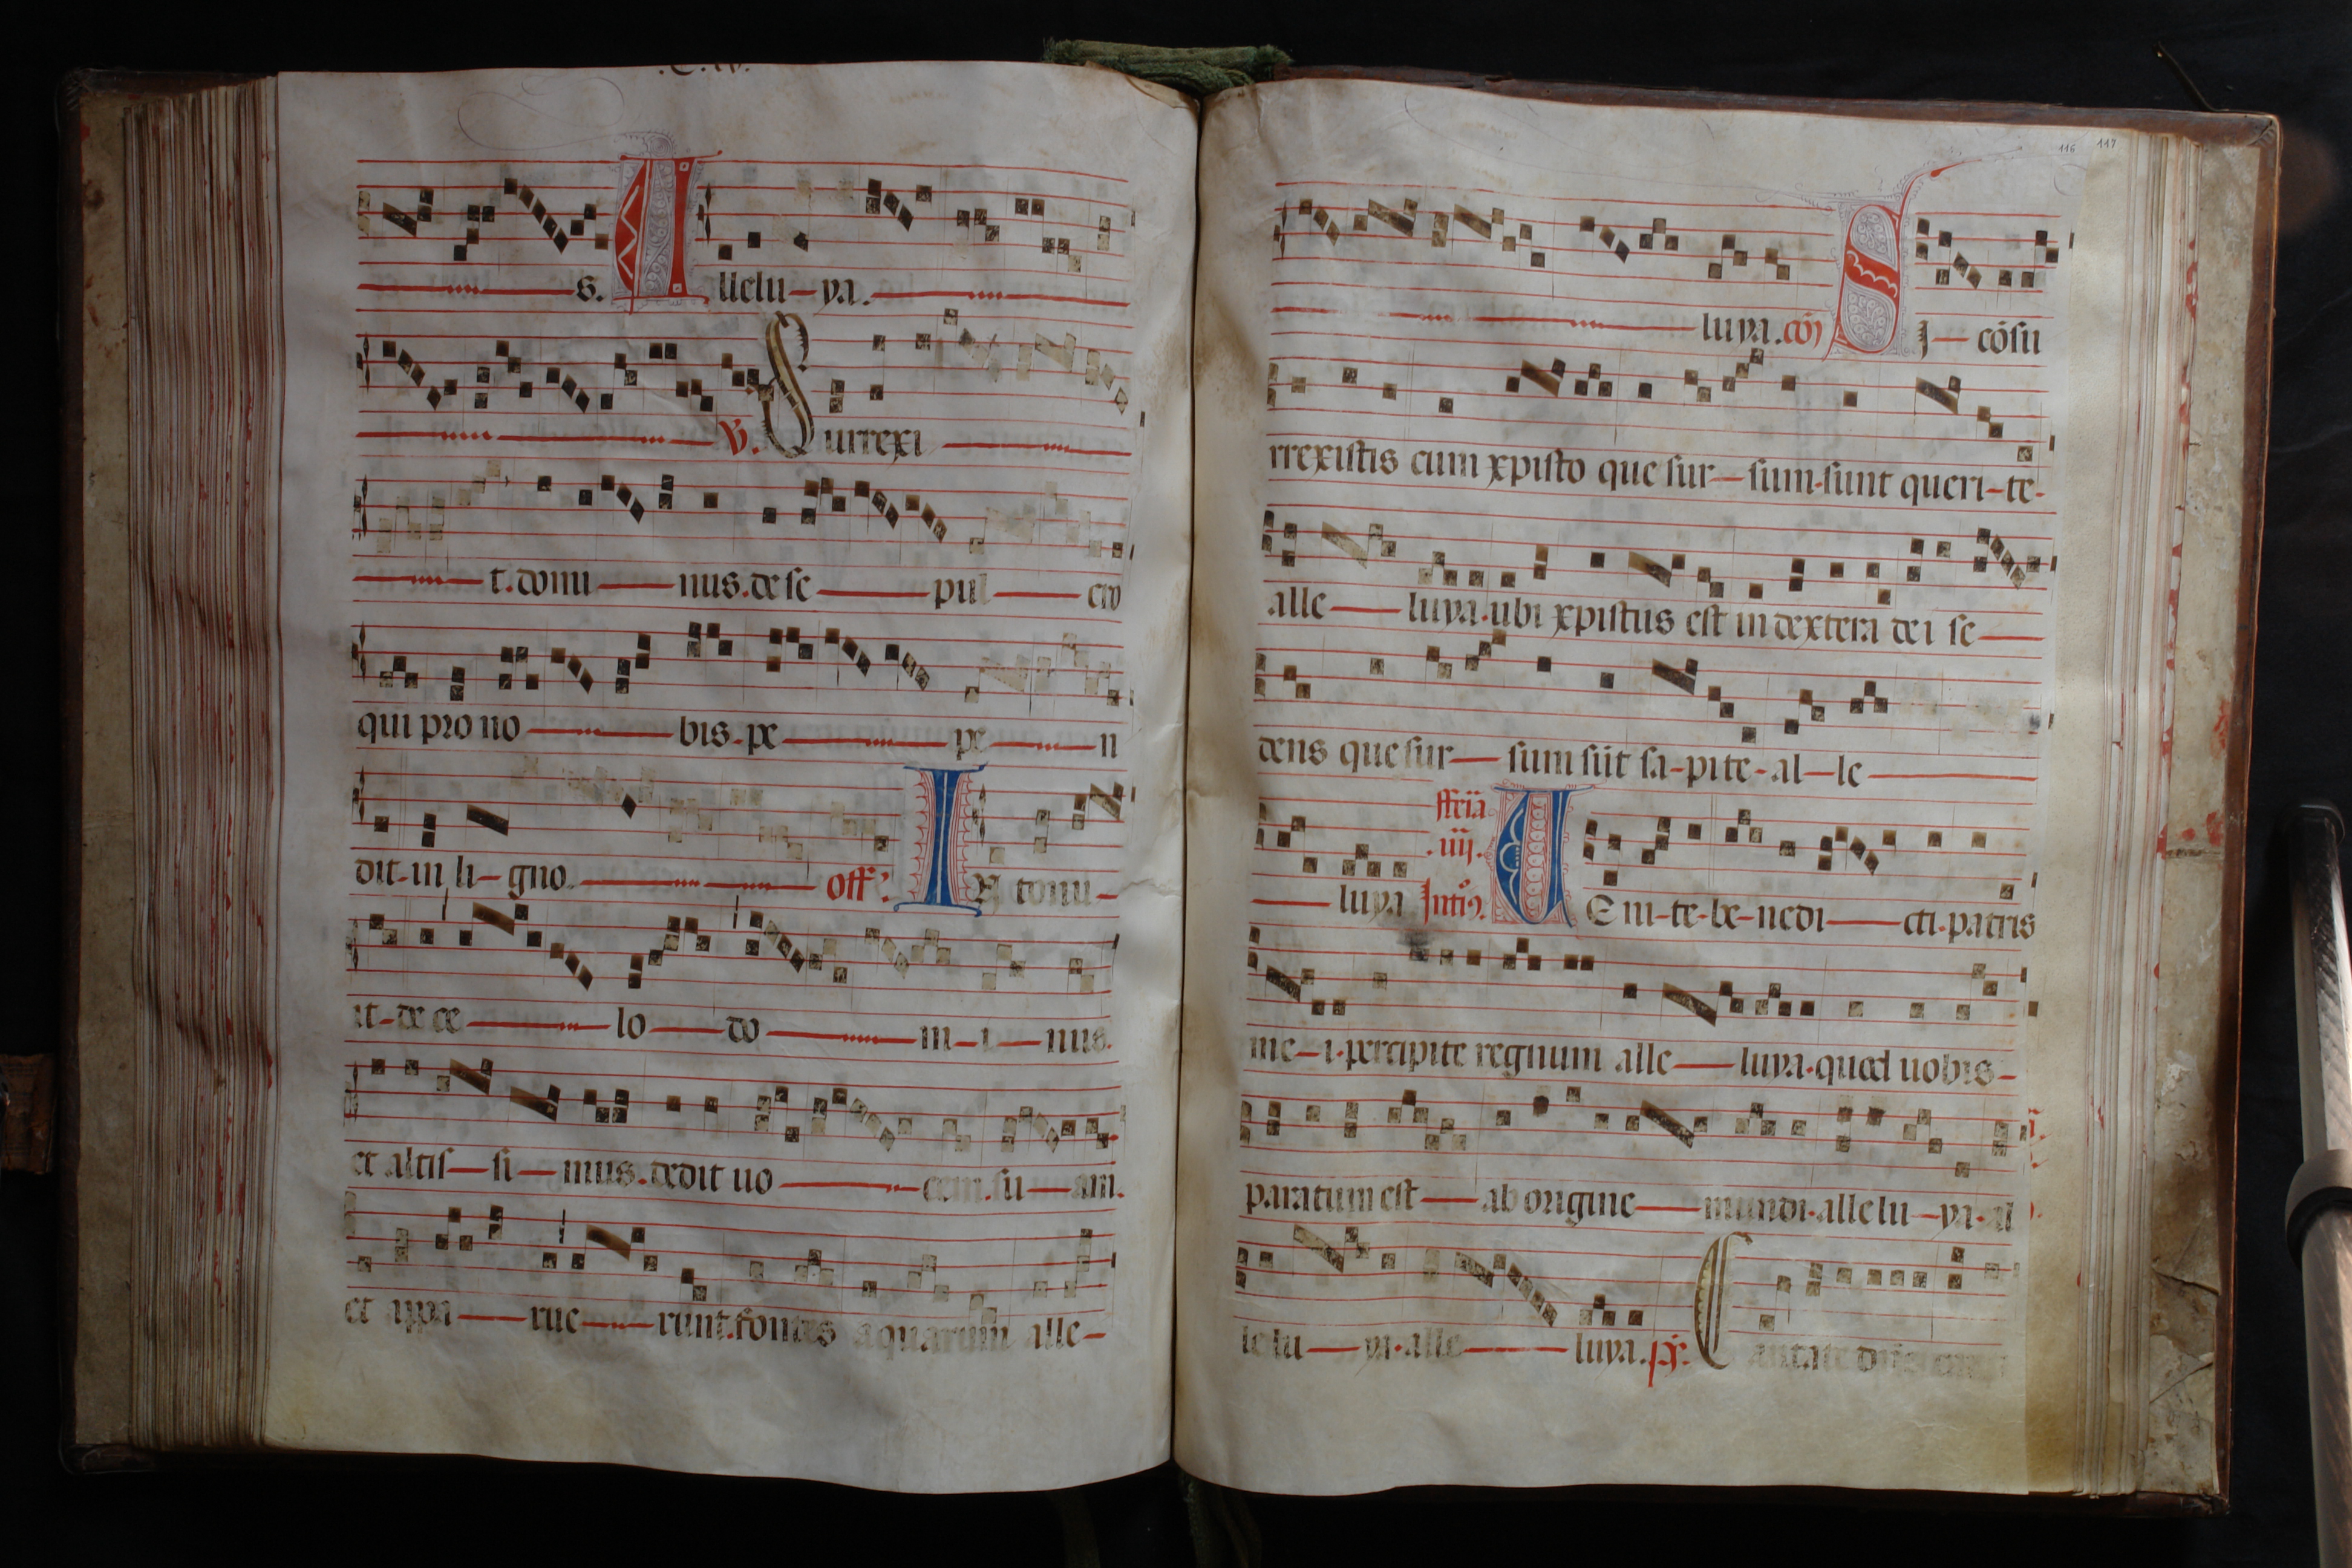 s. Alleluya.
V. Surrexi
t. domi nus. de se pul cro
qui pro no bis. pe pe n
dit. in li gno. off. In tonu
it. de ce lo do m i nus.
et altis si mus. dedit uo cem. su am.
et appa rue runt. fontes aquarum alle
116 117
luya. cō) Sj cōsu
rrexistis cum xpisto que sur sum. sunt queri te.
alle luya. ubi xpistus est in dextera dei se
dens que sur sum sūt sa pite. al le
fferia
.iiij.
luya Intro. UEni te. be nedi cti. patris
me i. percipite regnum alle luya. quod uobis
paratum est ab origine mundi. allelu ya. al
lelu ya. alle luya. ps. Cantate